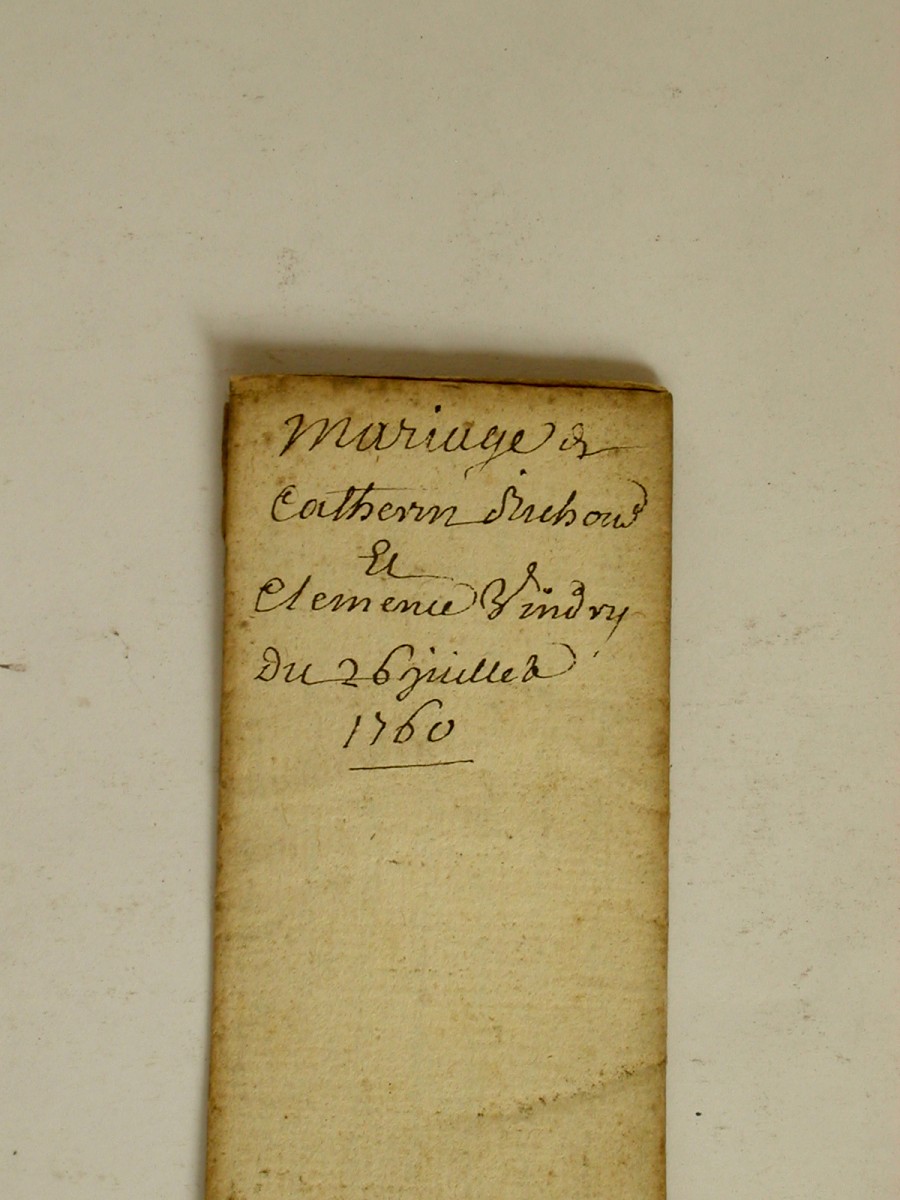 Mariage de
Catherin
Et
Clemence Vindry
Du 26 juillet
1760